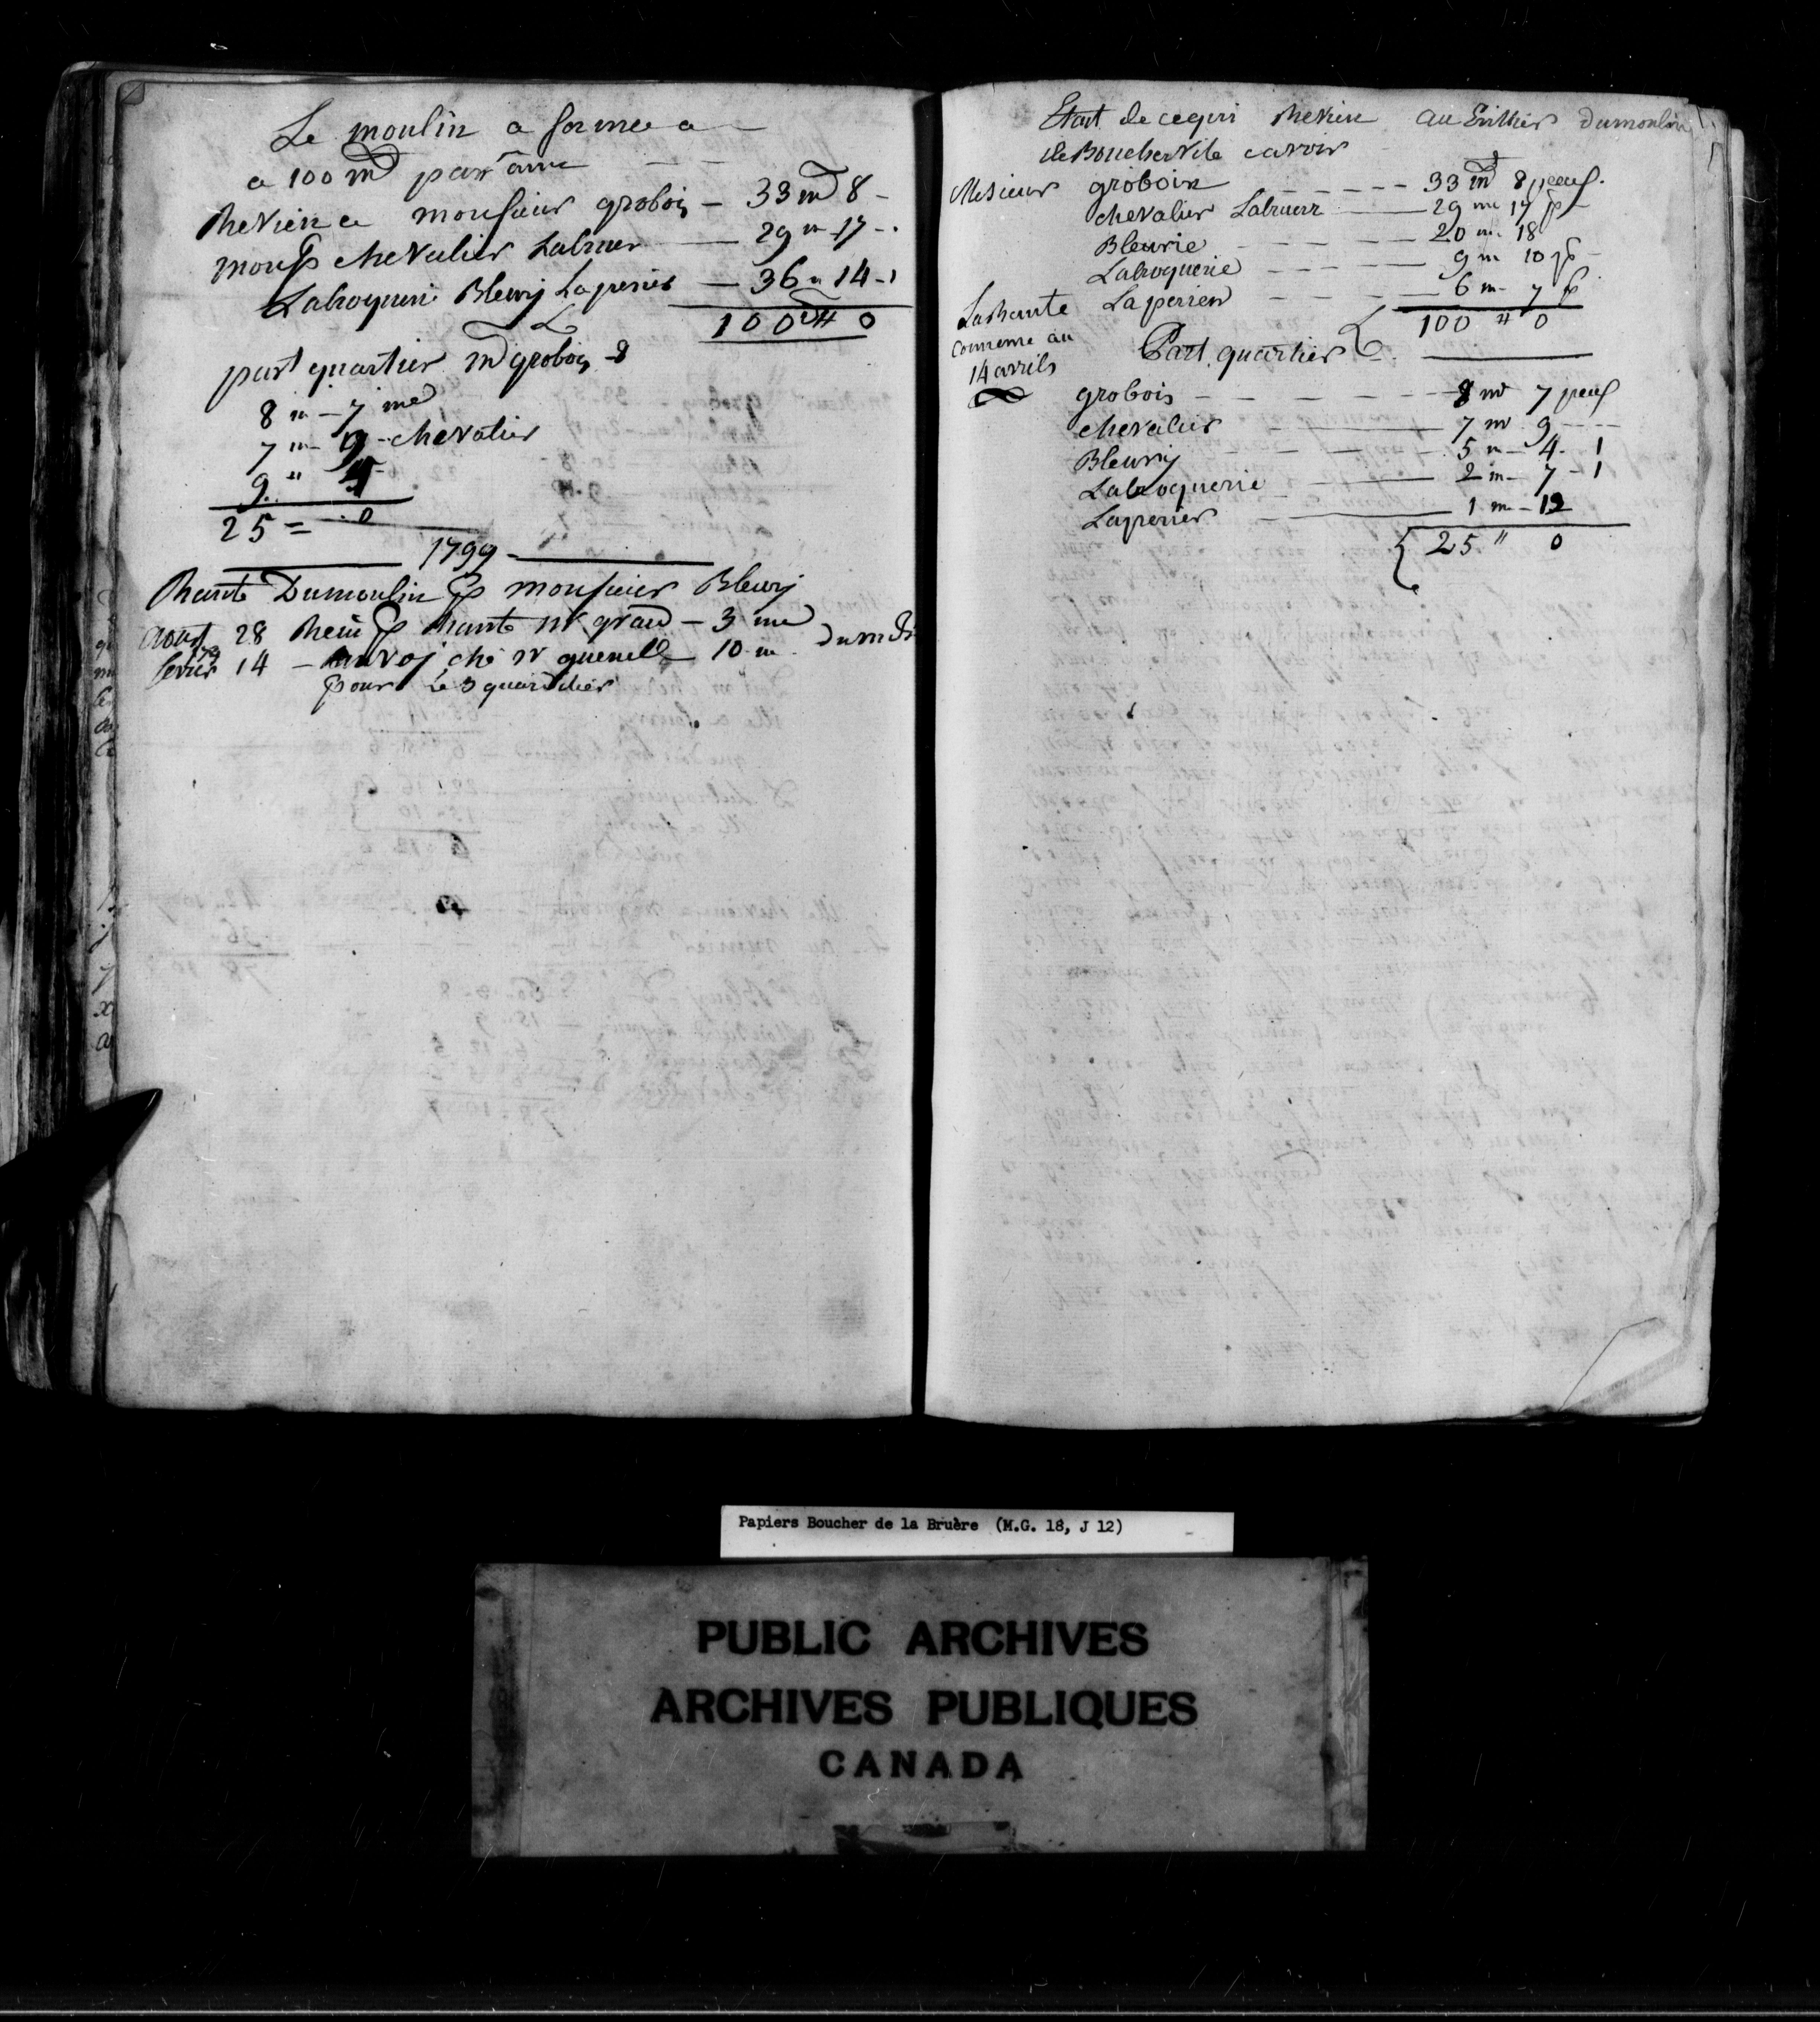 Le moulin a formee a
a 100 md par anne
Revien a monsieur grobois - 33 md 8 -
mons chevalier Labruer — 29 m 17 - .
Labroquerie Bleury Laperier — 36 " 14 - 1
100 " 0
part quartier md grobois
8 m - 7 me
7 m - 9 - chevalier
9 " 4
25 = 0
1799
Rante Dumoulin p monsieur Bleury
aout 28 Reciu p Rante mr grave - 3 me
fevrier 14 - anvoj ché mr quenell - 10 m
pour Le 3 quardtier
Etart de cequi Revien au Eritier dumoulin
de Boucherville cavoir
Mesieur groboix - - - - - 33 md 8 peuf.
chevalier Labruerr — 29 me 17 p
Bleurie - - - - - 20 m. 18
Labroquerie - - - - - 9 m 10 p
Laperier - - - - 6 m - 7 p
100 " 0
La Rante
conmeme au
14 avrils
Part quartier
grobois - - - - - 8 md 7 peuf
chevalier — 7 md 9 - - -
Bleuriy - - - - 5 m - 4 - 1
Labroquerie — 2 m - 7 - 1
Laperier — 1 m - 12
25 " 0
Papiers Boucher de la Bruère (M.G. 18, J 12)
PUBLIC ARCHIVES
ARCHIVES PUBLIQUES
CANADA